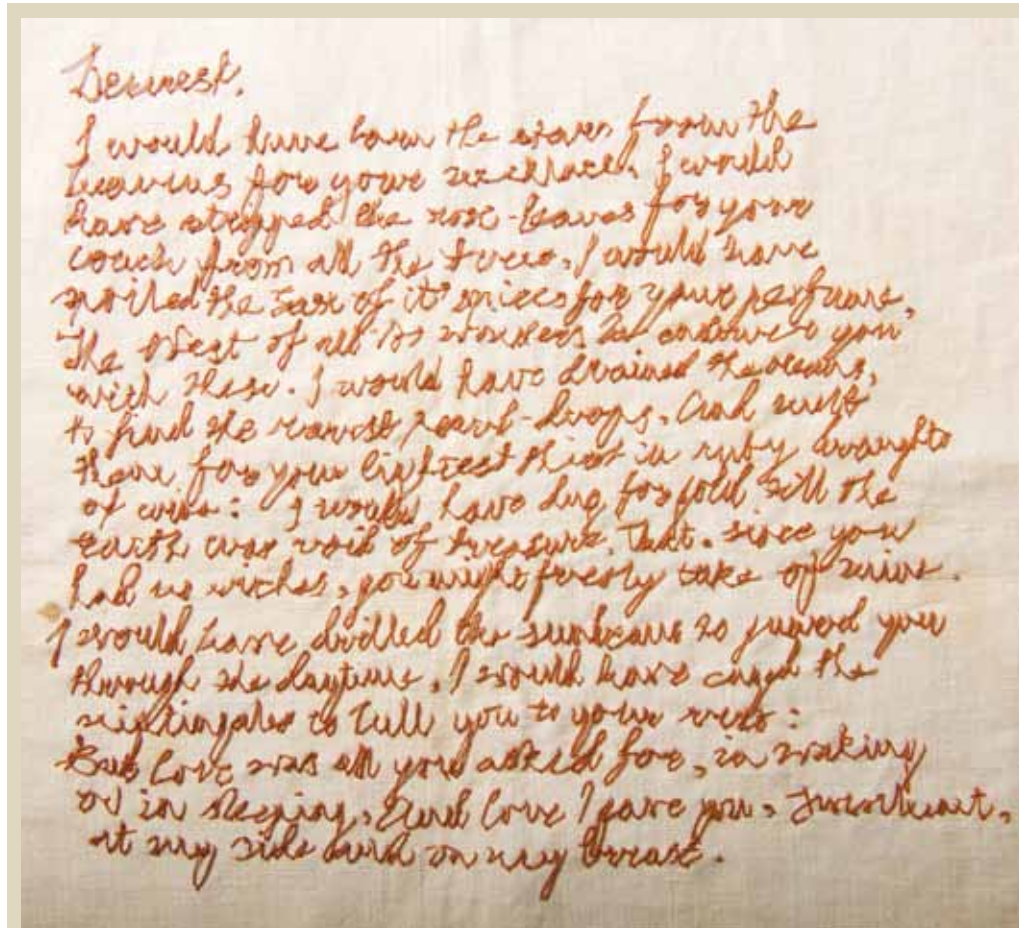 Dearest,
I would have torn the stars from the
heavens for your necklace, I would
have stripped the rose-leaves for your
couch from all the trees, I would have
spoiled the East of its spices for your perfume,
The West of all its wonders to endower you
with these. I would have drained the oceans,
to find the rarest pearl-drops, And melt
them for your lightest thirst in ruby draughts
of wine: I would have dug for gold till the
earth was void of treasure, That, since you
had no riches, you might freely take of mine.
I would have drilled the sunbeams to guard you
through the daytime, I would have caged the
nightingales to lull you to your rest:
But love was all you asked for, in waking
or in sleeping, And love I gave you, Sweetheart,
at my side and on my breast.